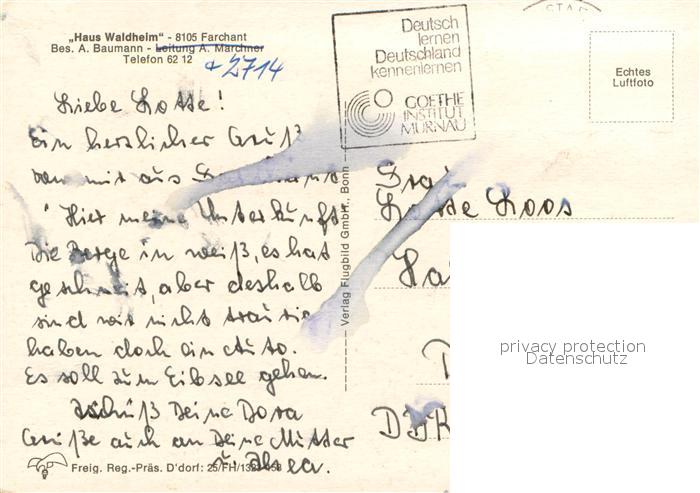 „Haus Waldheim" - 8105 Farchant
Bes. A. Baumann - Leitung A. Marchner
Telefon 62 12
+ 2714
Deutsch
lernen
Deutschland
kennenlernen
GOETHE
INSTITUT
MURNAU
Echtes
Luftfoto
Liebe Lotte!
Ein herzlicher Gruß
von mir aus
Hier meine Unterkunft
Die Berge in weiß, es hat
geschneit, aber deshalb
sind wir nicht traurig
haben doch ein Auto.
Es soll zum Eibsee gehen.
Tschüß Deine Dora
Grüße auch an Deine Mutter
u.
Verlag Flugbild GmbH., Bonn
Lotte Loos
DDR
Freig. Reg.-Präs. D'dorf: 25/FH/
privacy protection
Datenschutz